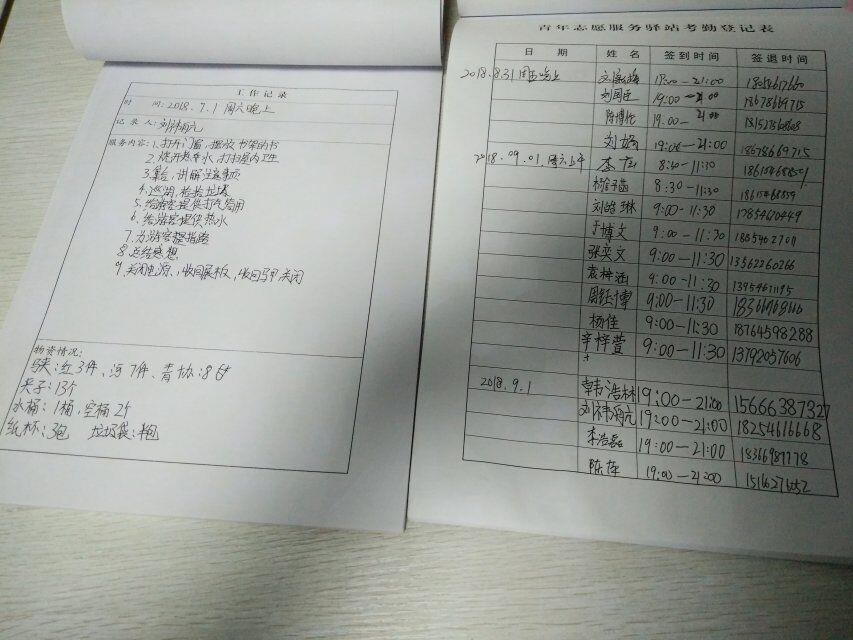 工作记录
时 间: 2018.7.1 周六晚上
记录人: 刘祎炯元
服务内容: 1.打开门窗, 摆放书架的书
2.烧开热水, 打扫室内卫生
3.集合, 讲解注意事项
4.巡湖, 捡拾垃圾
5.给游客提供打气筒用
6.给游客提供热水
7.为游客提指路
8.总结感想
9.关闭电源, 收回展板, 收回马甲关闭
物资情况:
红3件、河7件、青协:8
夹子:13个
水桶: 1桶, 空桶2个
纸杯:3包 垃圾袋:半包
青年志愿服务驿站考勤登记表
日 期 姓 名 签到时间 签退时间
2018.8.31 周五晚上 19:00-21:00
刘国臣 19:00-21:00 18678669715
陈博伦 19:00-21:00
刘娟 19:00-21:00 18678669715
2018.09.01.周六上午 李 8:30-11:30
杨子菡 8:30-11:30
刘皓琳 9:00-11:30 17854670449
于博文 9:00-11:30
张奕文 9:00-11:30 13562260266
袁梓涵 9:00-11:30
周钰博 9:00-11:30
杨佳 9:00-11:30 18764598288
辛梓萱 9:00-11:30 13792057606
2018.9.1 韩浩林 19:00-21:00 15666387327
刘祎炯元 19:00-21:00 18254616668
李浩磊 19:00-21:00
陈萍 19:00-21:00